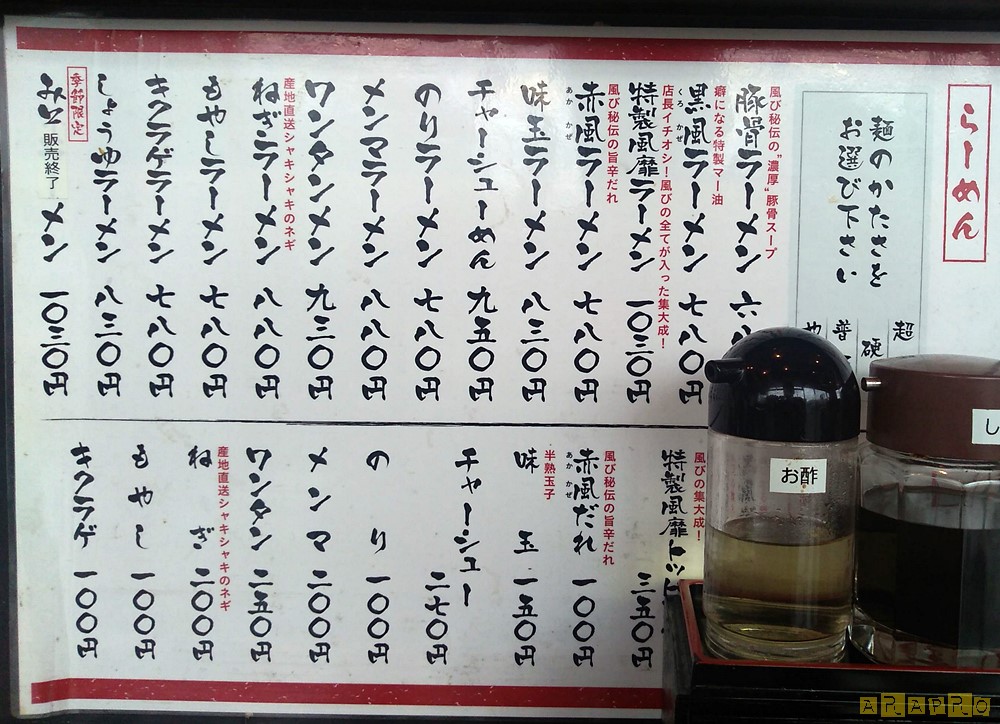 らーめん
麺のかたさを
お選び下さい
超
硬
普
風び秘伝の"濃厚"豚骨スープ
豚骨ラーメン 六
癖になる特製マー油
黒風ラーメン 七八〇円
くろ かぜ
店長イチオシ!風びの全てが入った集大成!
特製風靡ラーメン 一〇三〇円
風び秘伝の旨辛だれ
赤風ラーメン 七八〇円
あか かぜ
味玉ラーメン 八三〇円
チャーシューめん 九五〇円
のりラーメン 七八〇円
メンマラーメン 八八〇円
ワンタンメン 九三〇円
産地直送シャキシャキのネギ
ねぎラーメン 八八〇円
もやしラーメン 七八〇円
キクラゲラーメン 七八〇円
しょうゆラーメン 八三〇円
季節限定
みそ 販売終了 メン 一〇三〇円
風びの集大成!
特製風靡トッピ 三五〇円
風び秘伝の旨辛だれ
赤風だれ 一〇〇円
あか かぜ
味玉 一五〇円
半熟玉子
チャーシュー 二七〇円
のり 一〇〇円
メンマ 二〇〇円
ワンタン 二五〇円
産地直送シャキシャキのネギ
ねぎ 二〇〇円
もやし 一〇〇円
キクラゲ 一〇〇円
お酢
し
APAPPO